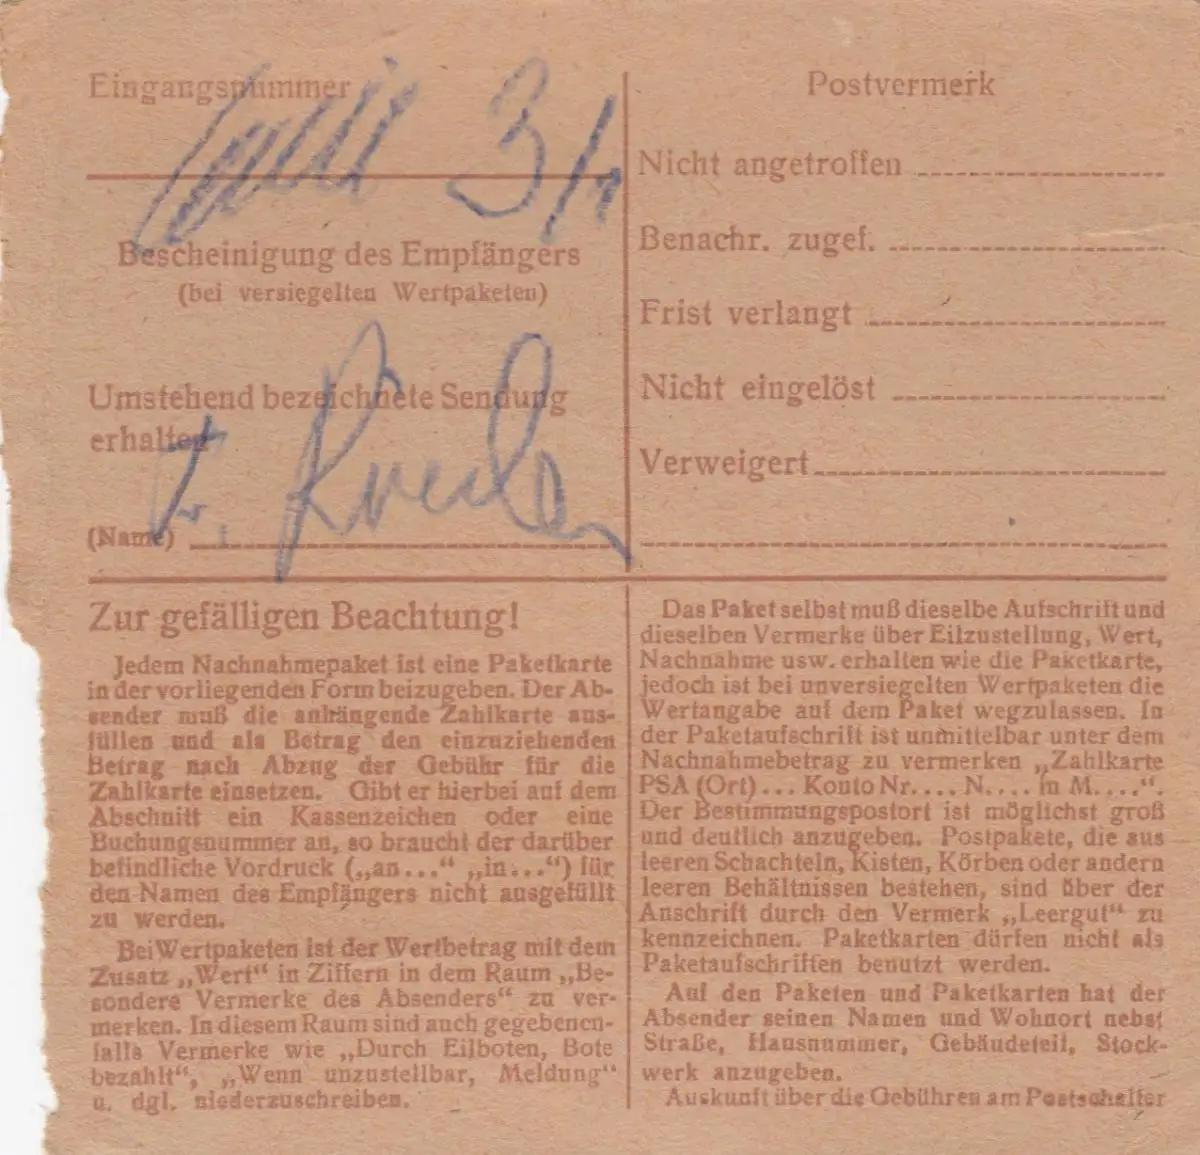 Eingangsnummer
3/
Bescheinigung des Empfängers
(bei versiegelten Wertpaketen)
Umstehend bezeichnete Sendung
erhalten
(Name)
Postvermerk
Nicht angetroffen
Benachr. zugef.
Frist verlangt
Nicht eingelöst
Verweigert
Zur gefälligen Beachtung!
Jedem Nachnahmepaket ist eine Paketkarte
in der vorliegenden Form beizugeben. Der Ab-
sender muß die anhängende Zahlkarte aus-
füllen und als Betrag den einzuziehenden
Betrag nach Abzug der Gebühr für die
Zahlkarte einsetzen. Gibt er hierbei auf dem
Abschnitt ein Kassenzeichen oder eine
Buchungsnummer an, so braucht der darüber
befindliche Vordruck („an...“ „in...“) für
den Namen des Empfängers nicht ausgefüllt
zu werden.
Bei Wertpaketen ist der Wertbetrag mit dem
Zusatz „Wert“ in Ziffern in dem Raum „Be-
sondere Vermerke des Absenders“ zu ver-
merken. In diesem Raum sind auch gegebenen-
falls Vermerke wie „Durch Eilboten, Bote
bezahlt“, „Wenn unzustellbar, Meldung“
u. dgl. niederzuschreiben.
Das Paket selbst muß dieselbe Aufschrift und
dieselben Vermerke über Eilzustellung, Wert,
Nachnahme usw. erhalten wie die Paketkarte,
jedoch ist bei unversiegelten Wertpaketen die
Wertangabe auf dem Paket wegzulassen. In
der Paketaufschrift ist unmittelbar unter dem
Nachnahmebetrag zu vermerken „Zahlkarte
PSA (Ort)... Konto Nr.... N.... in M....“.
Der Bestimmungspostort ist möglichst groß
und deutlich anzugeben. Postpakete, die aus
leeren Schachteln, Kisten, Körben oder andern
leeren Behältnissen bestehen, sind über der
Anschrift durch den Vermerk „Leergut“ zu
kennzeichnen. Paketkarten dürfen nicht als
Paketaufschriften benutzt werden.
Auf den Paketen und Paketkarten hat der
Absender seinen Namen und Wohnort nebst
Straße, Hausnummer, Gebäudeteil, Stock-
werk anzugeben.
Auskunft über die Gebühren am Postschalter